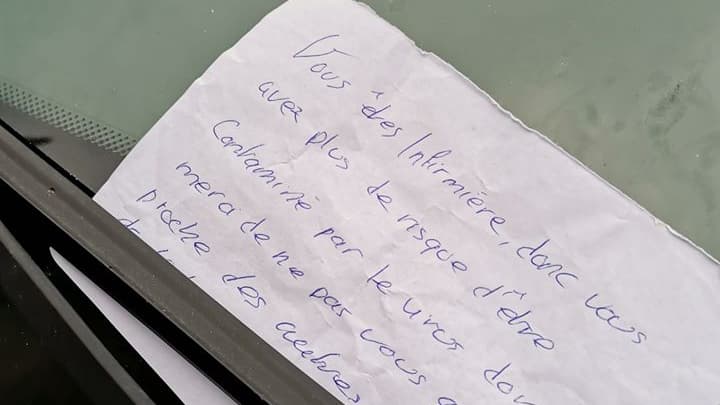 Vous êtes Infirmière, donc vous
avez plus de risque d'être
Contaminé par le virus
merci de ne pas vous
proche des